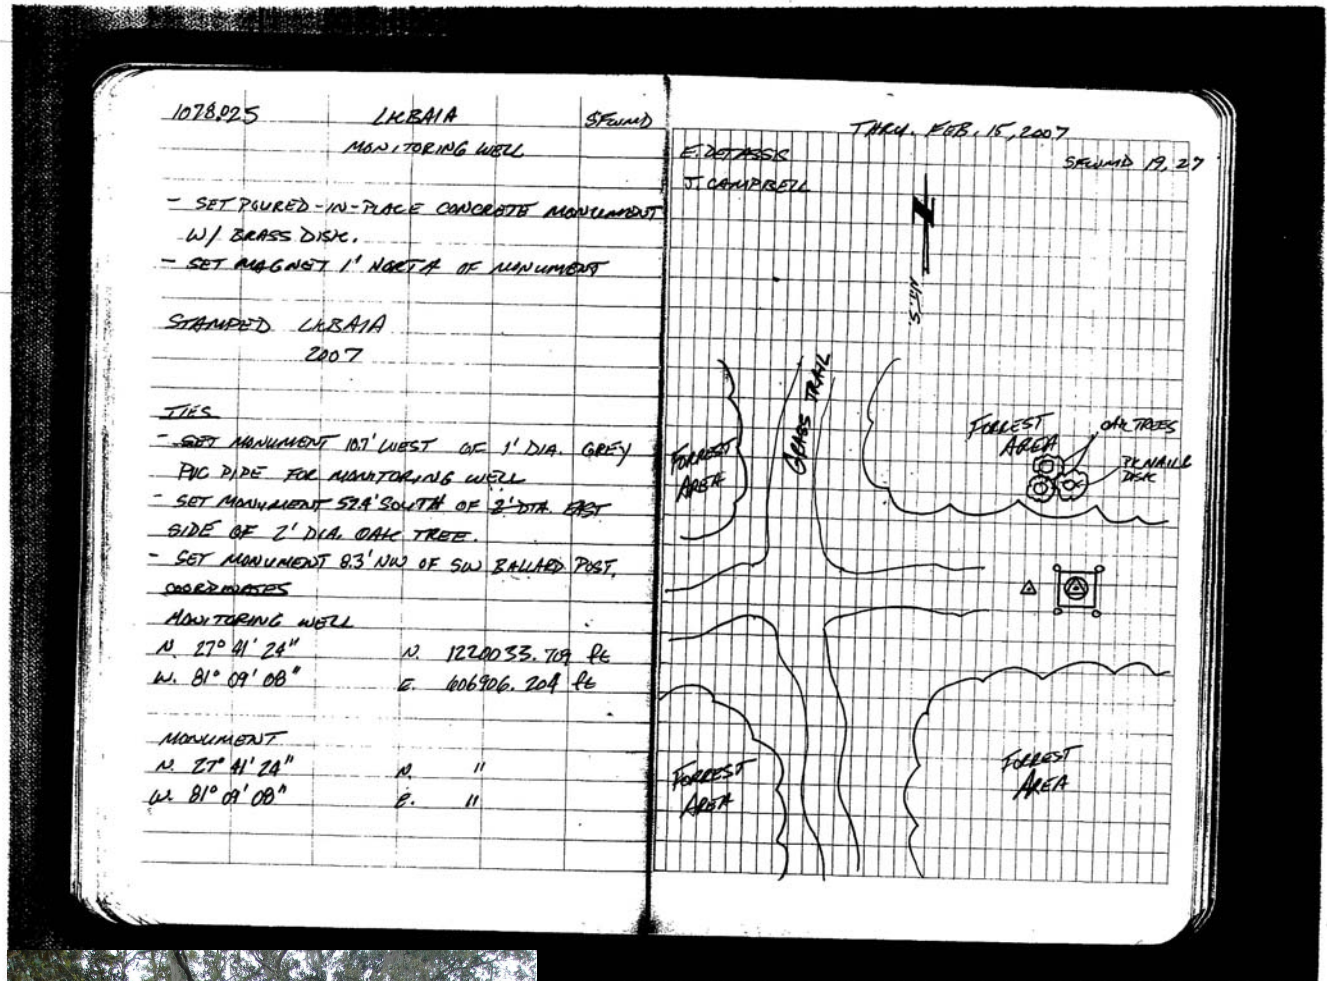 1078.025 LKBA1A SFWMD
MONITORING WELL
- SET POURED-IN-PLACE CONCRETE MONUMENT
W/ BRASS DISK.
- SET MAGNET 1' NORTH OF MONUMENT
STAMPED LKBA1A
2007
TIES
- SET MONUMENT 10.7' WEST OF 1' DIA. GREY
PVC PIPE FOR MONITORING WELL
- SET MONUMENT 52.4' SOUTH OF 2' DIA. EAST
SIDE OF 2' DIA. OAK TREE.
- SET MONUMENT 8.3' NW OF SW BALLARD POST.
COORDINATES
MONITORING WELL
N. 27° 41' 24" N. 1220033.709 ft
W. 81° 09' 08" E. 606906.204 ft
MONUMENT
N. 27° 41' 24" N. "
W. 81° 09' 08" E. "
THRU. FEB. 15, 2007
E. DETASSIS
SFWMD 19, 27
J. CAMPBELL
N.T.S.
GRASS TRAIL
FORREST
AREA
FORREST
AREA
OAK TREES
PK NAIL &
DISK
FORREST
AREA
FORREST
AREA